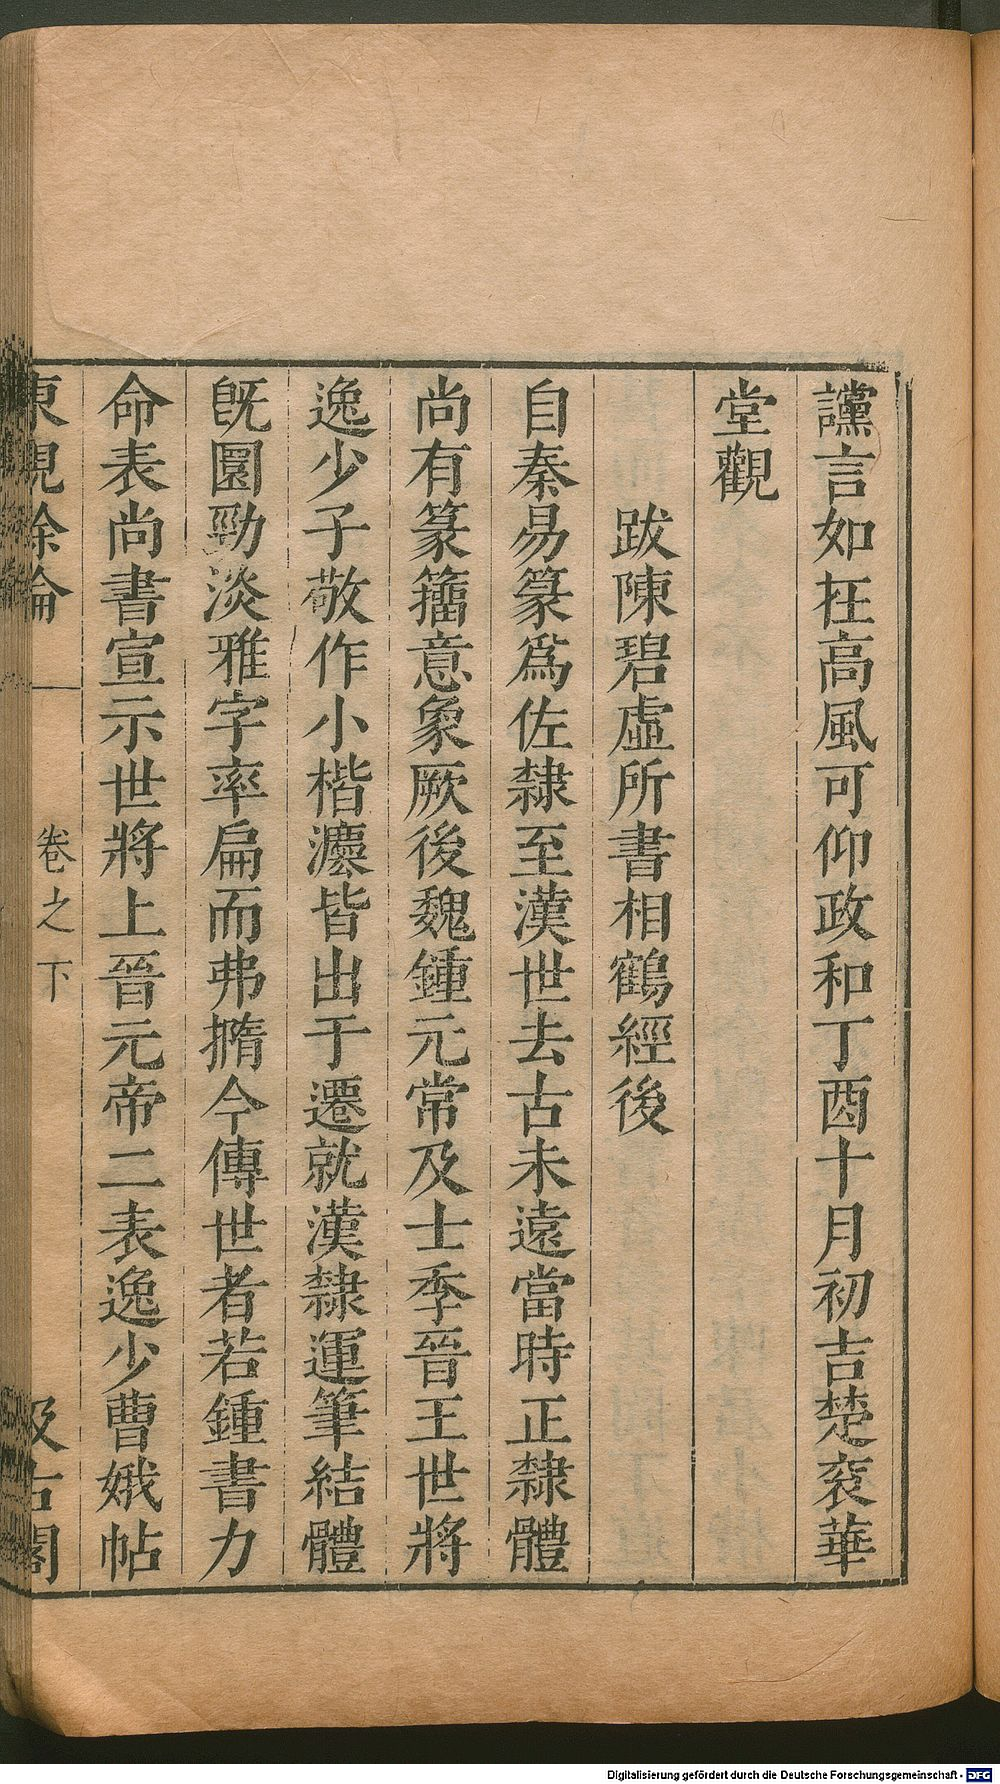 讜言如在高風可仰政和丁酉十月初吉楚袞華
堂觀
跋陳碧虛所書相鶴經後
自秦易篆爲佐隸至漢世去古未遠當時正隸體
尚有篆籀意象厥後魏鍾元常及士季晉王世將
逸少子敬作小楷灋皆出于遷就漢隸運筆結體
旣圓勁淡雅字率扁而弗橢今傳世者若鍾書力
命表尚書宣示世將上晉元帝二表逸少曹娥帖
東觀餘論
卷之下
汲古閣
Digitalisierung gefördert durch die Deutsche Forschungsgemeinschaft - DFG